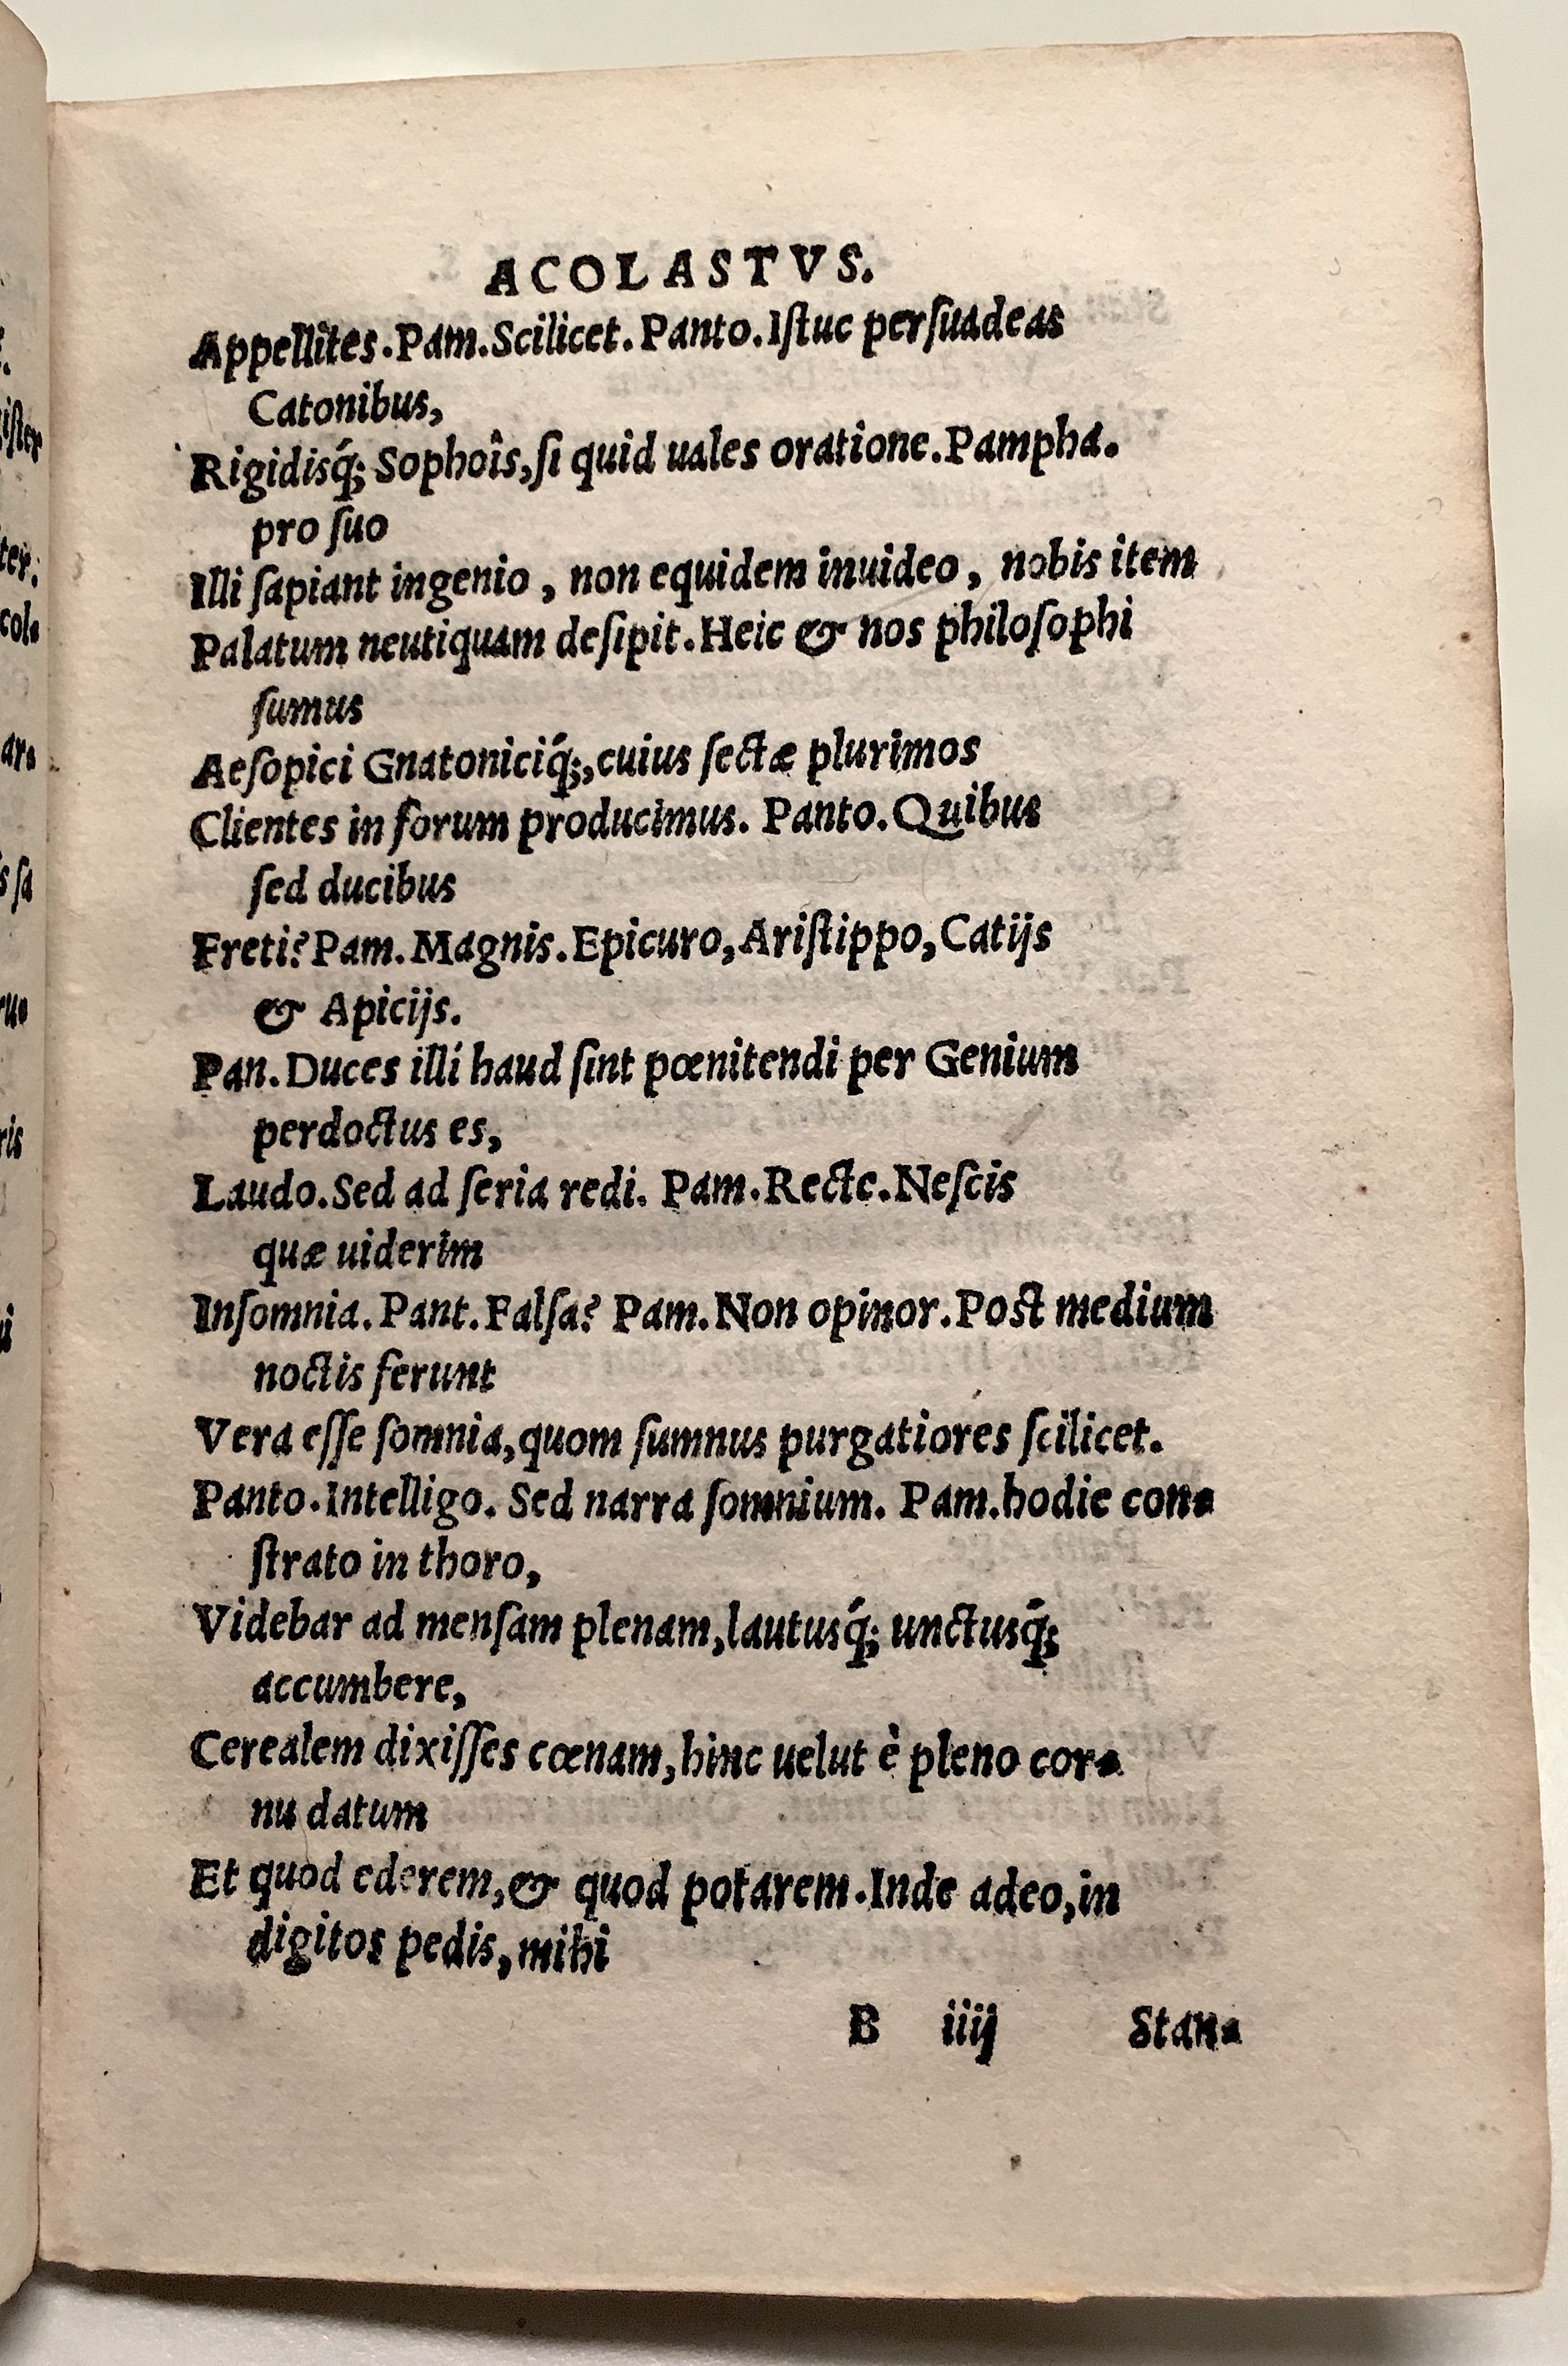 ACOLASTVS.
Appellites.Pam.Scilicet. Panto.Iſtuc perſuadeas
Catonibus,
Rigidisq́; Sophoîs,ſi quid uales oratione.Pampha.
pro ſuo
Illi ſapiant ingenio , non equidem inuideo , nobis item
Palatum neutiquam deſipit.Heic & nos philoſophi
ſumus
Aeſopici Gnatoniciq́;,cuius ſectæ plurimos
Clientes in forum producimus. Panto.Quibus
ſed ducibus
Freti? Pam.Magnis.Epicuro,Ariſtippo,Catijs
& Apicijs.
Pan.Duces illi haud ſint pœnitendi per Genium
perdoctus es,
Laudo.Sed ad ſeria redi. Pam.Recte.Neſcis
quæ uiderim
Inſomnia.Pant.Falſa? Pam.Non opinor.Poſt medium
noctis ferunt
Vera eſſe ſomnia,quom ſumnus purgatiores ſcilicet.
Panto.Intelligo. Sed narra ſomnium. Pam.hodie con-
ſtrato in thoro,
Videbar ad menſam plenam,lautusq́; unctusq́;
accumbere,
Cerealem dixiſſes cœnam,hinc uelut è pleno cor-
nu datum
Et quod ederem,& quod potarem.Inde adeo,in
digitos pedis,mihi
B iiij Stan-